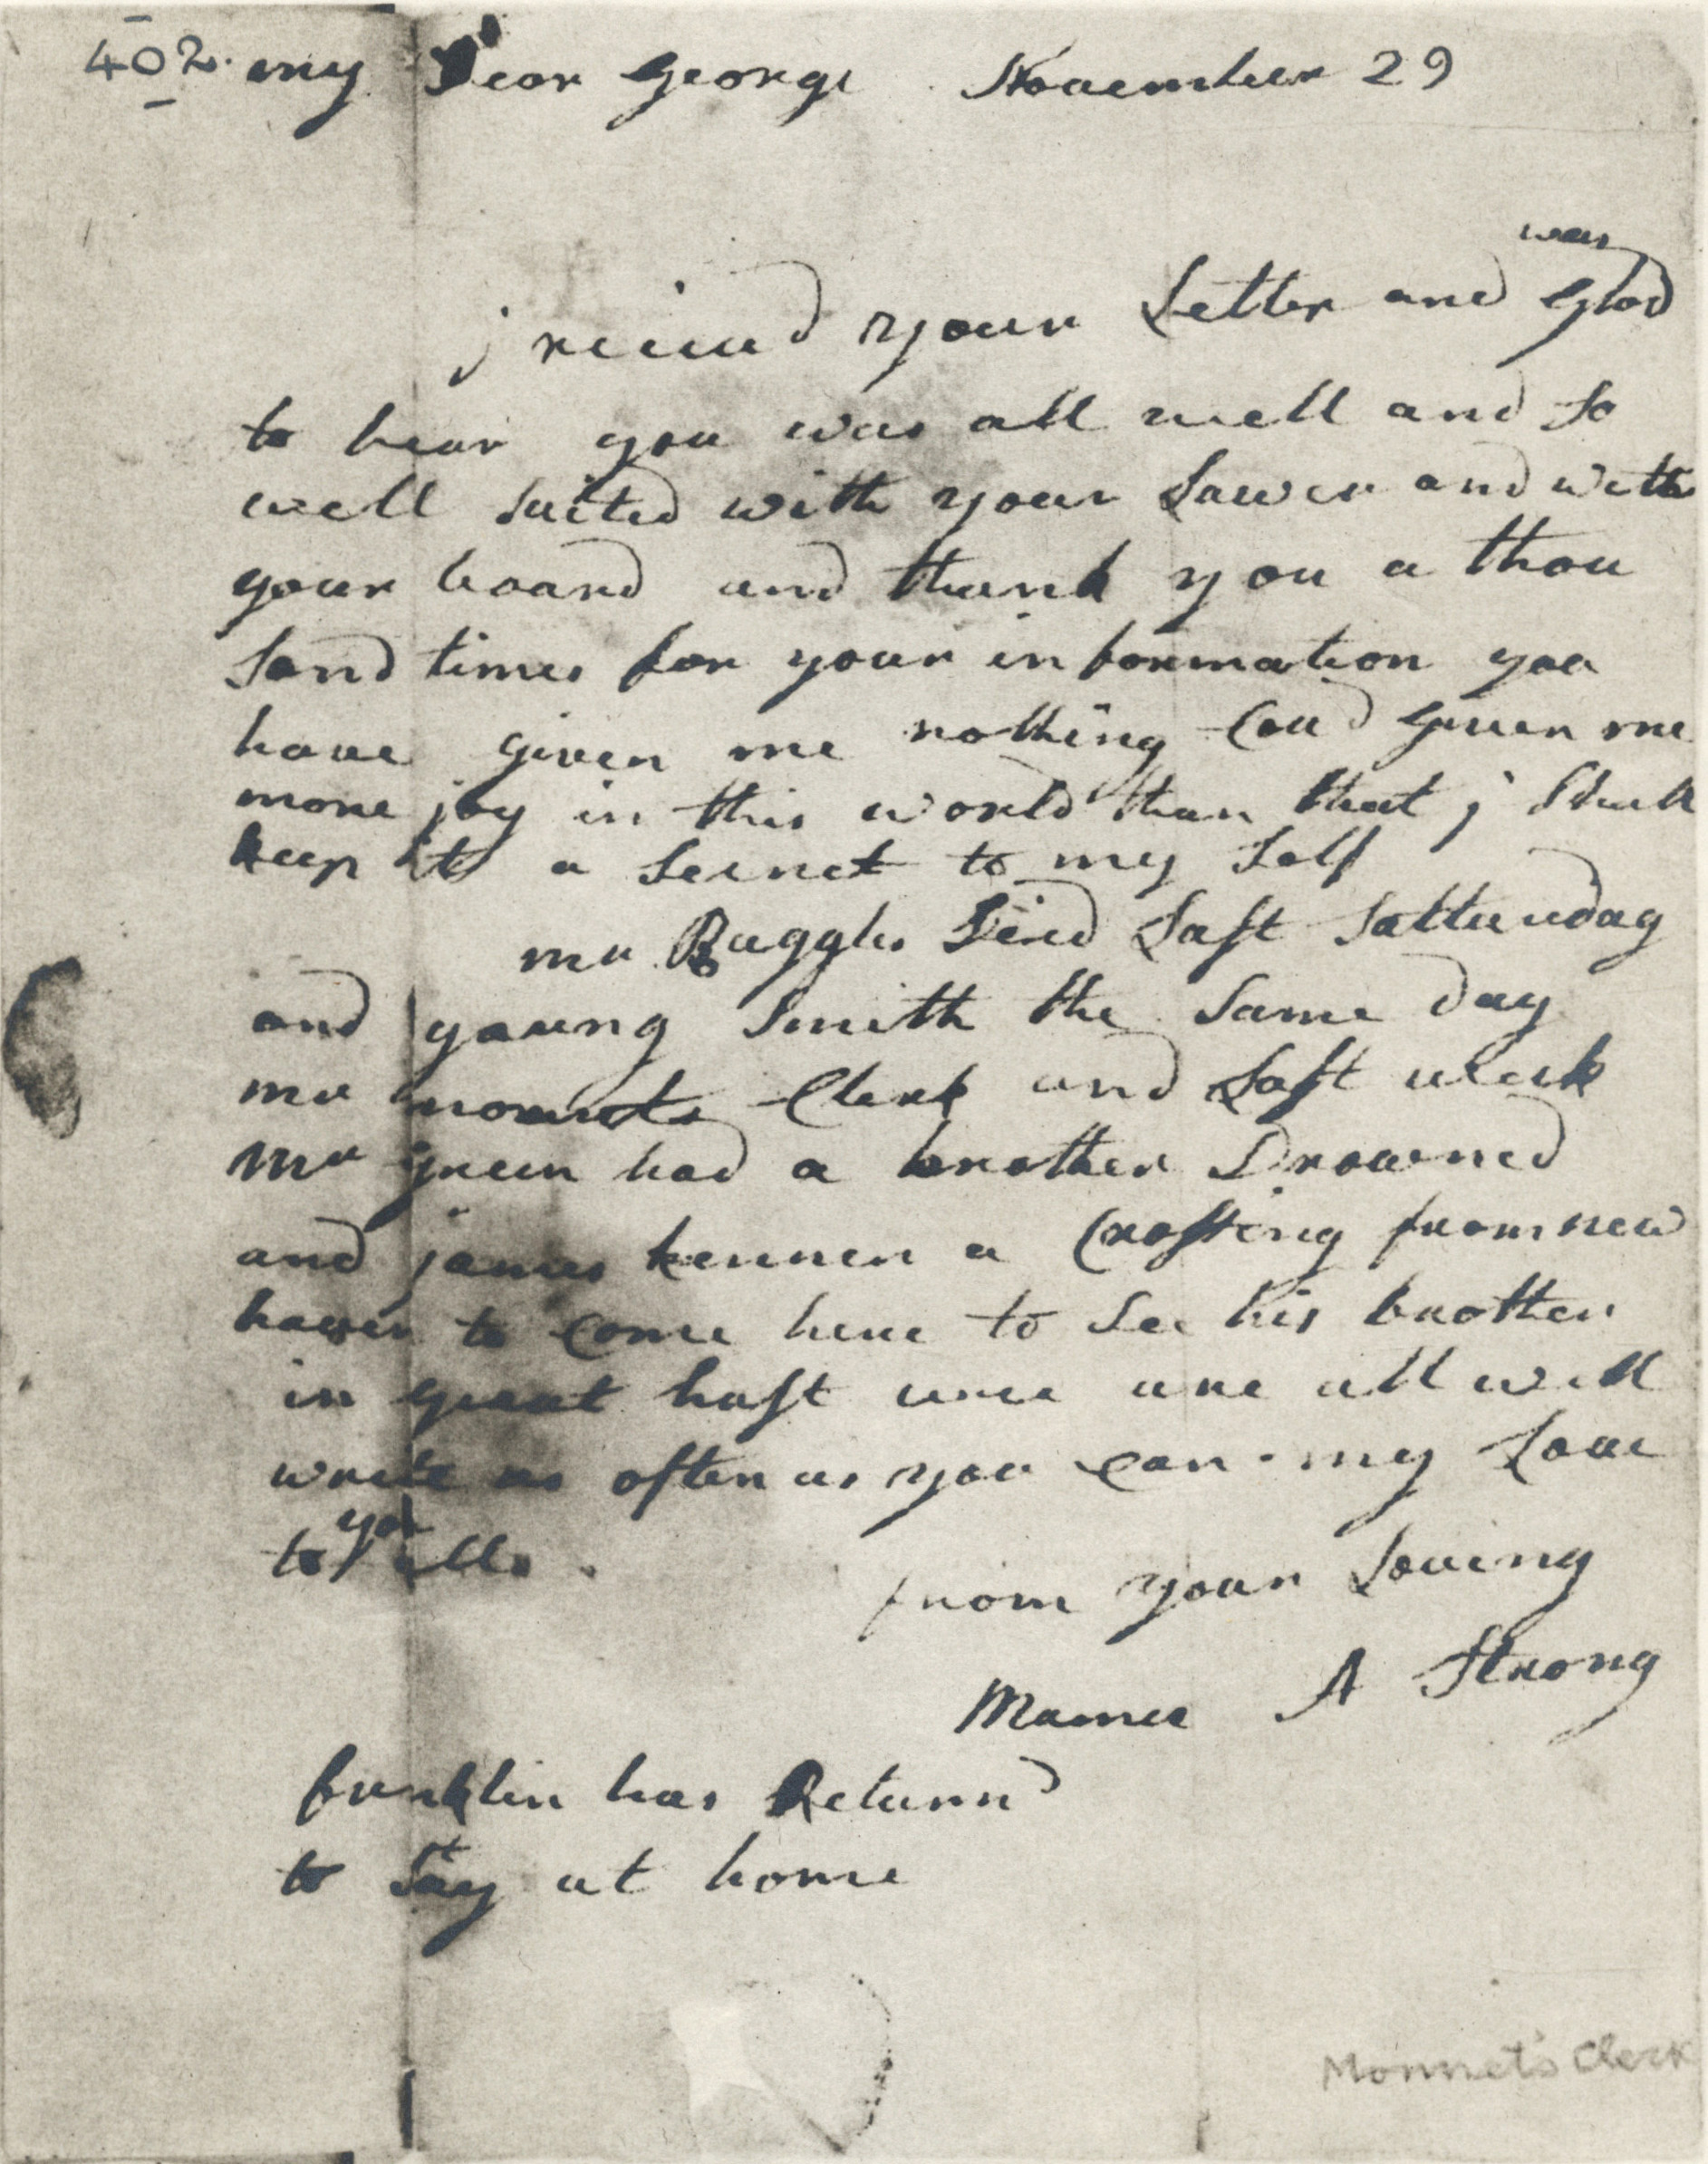 402. my Dear George November 29
was
j receiud your Letter and Glad
to hear you was all well and So
well Suited with your Lawer and with
your board and thank you a thou
Sand times for your information you
have given me nothing Coud given me
more joy in this world than that j Shall
keep it a Secret to my Self
mr Ruggls Died Last Satturday
and young Smith the Same day
mr Clerk and Last week
Mr green had a brother Drowned
and james a Crossing from new
haven to Come here to See his brother
in great hast wee are all well
write as often as you can my Love
you
to alls
from your Loving
Mamee A Strong
franklin has Returnd
to Stay at home
Monnet's Clerk